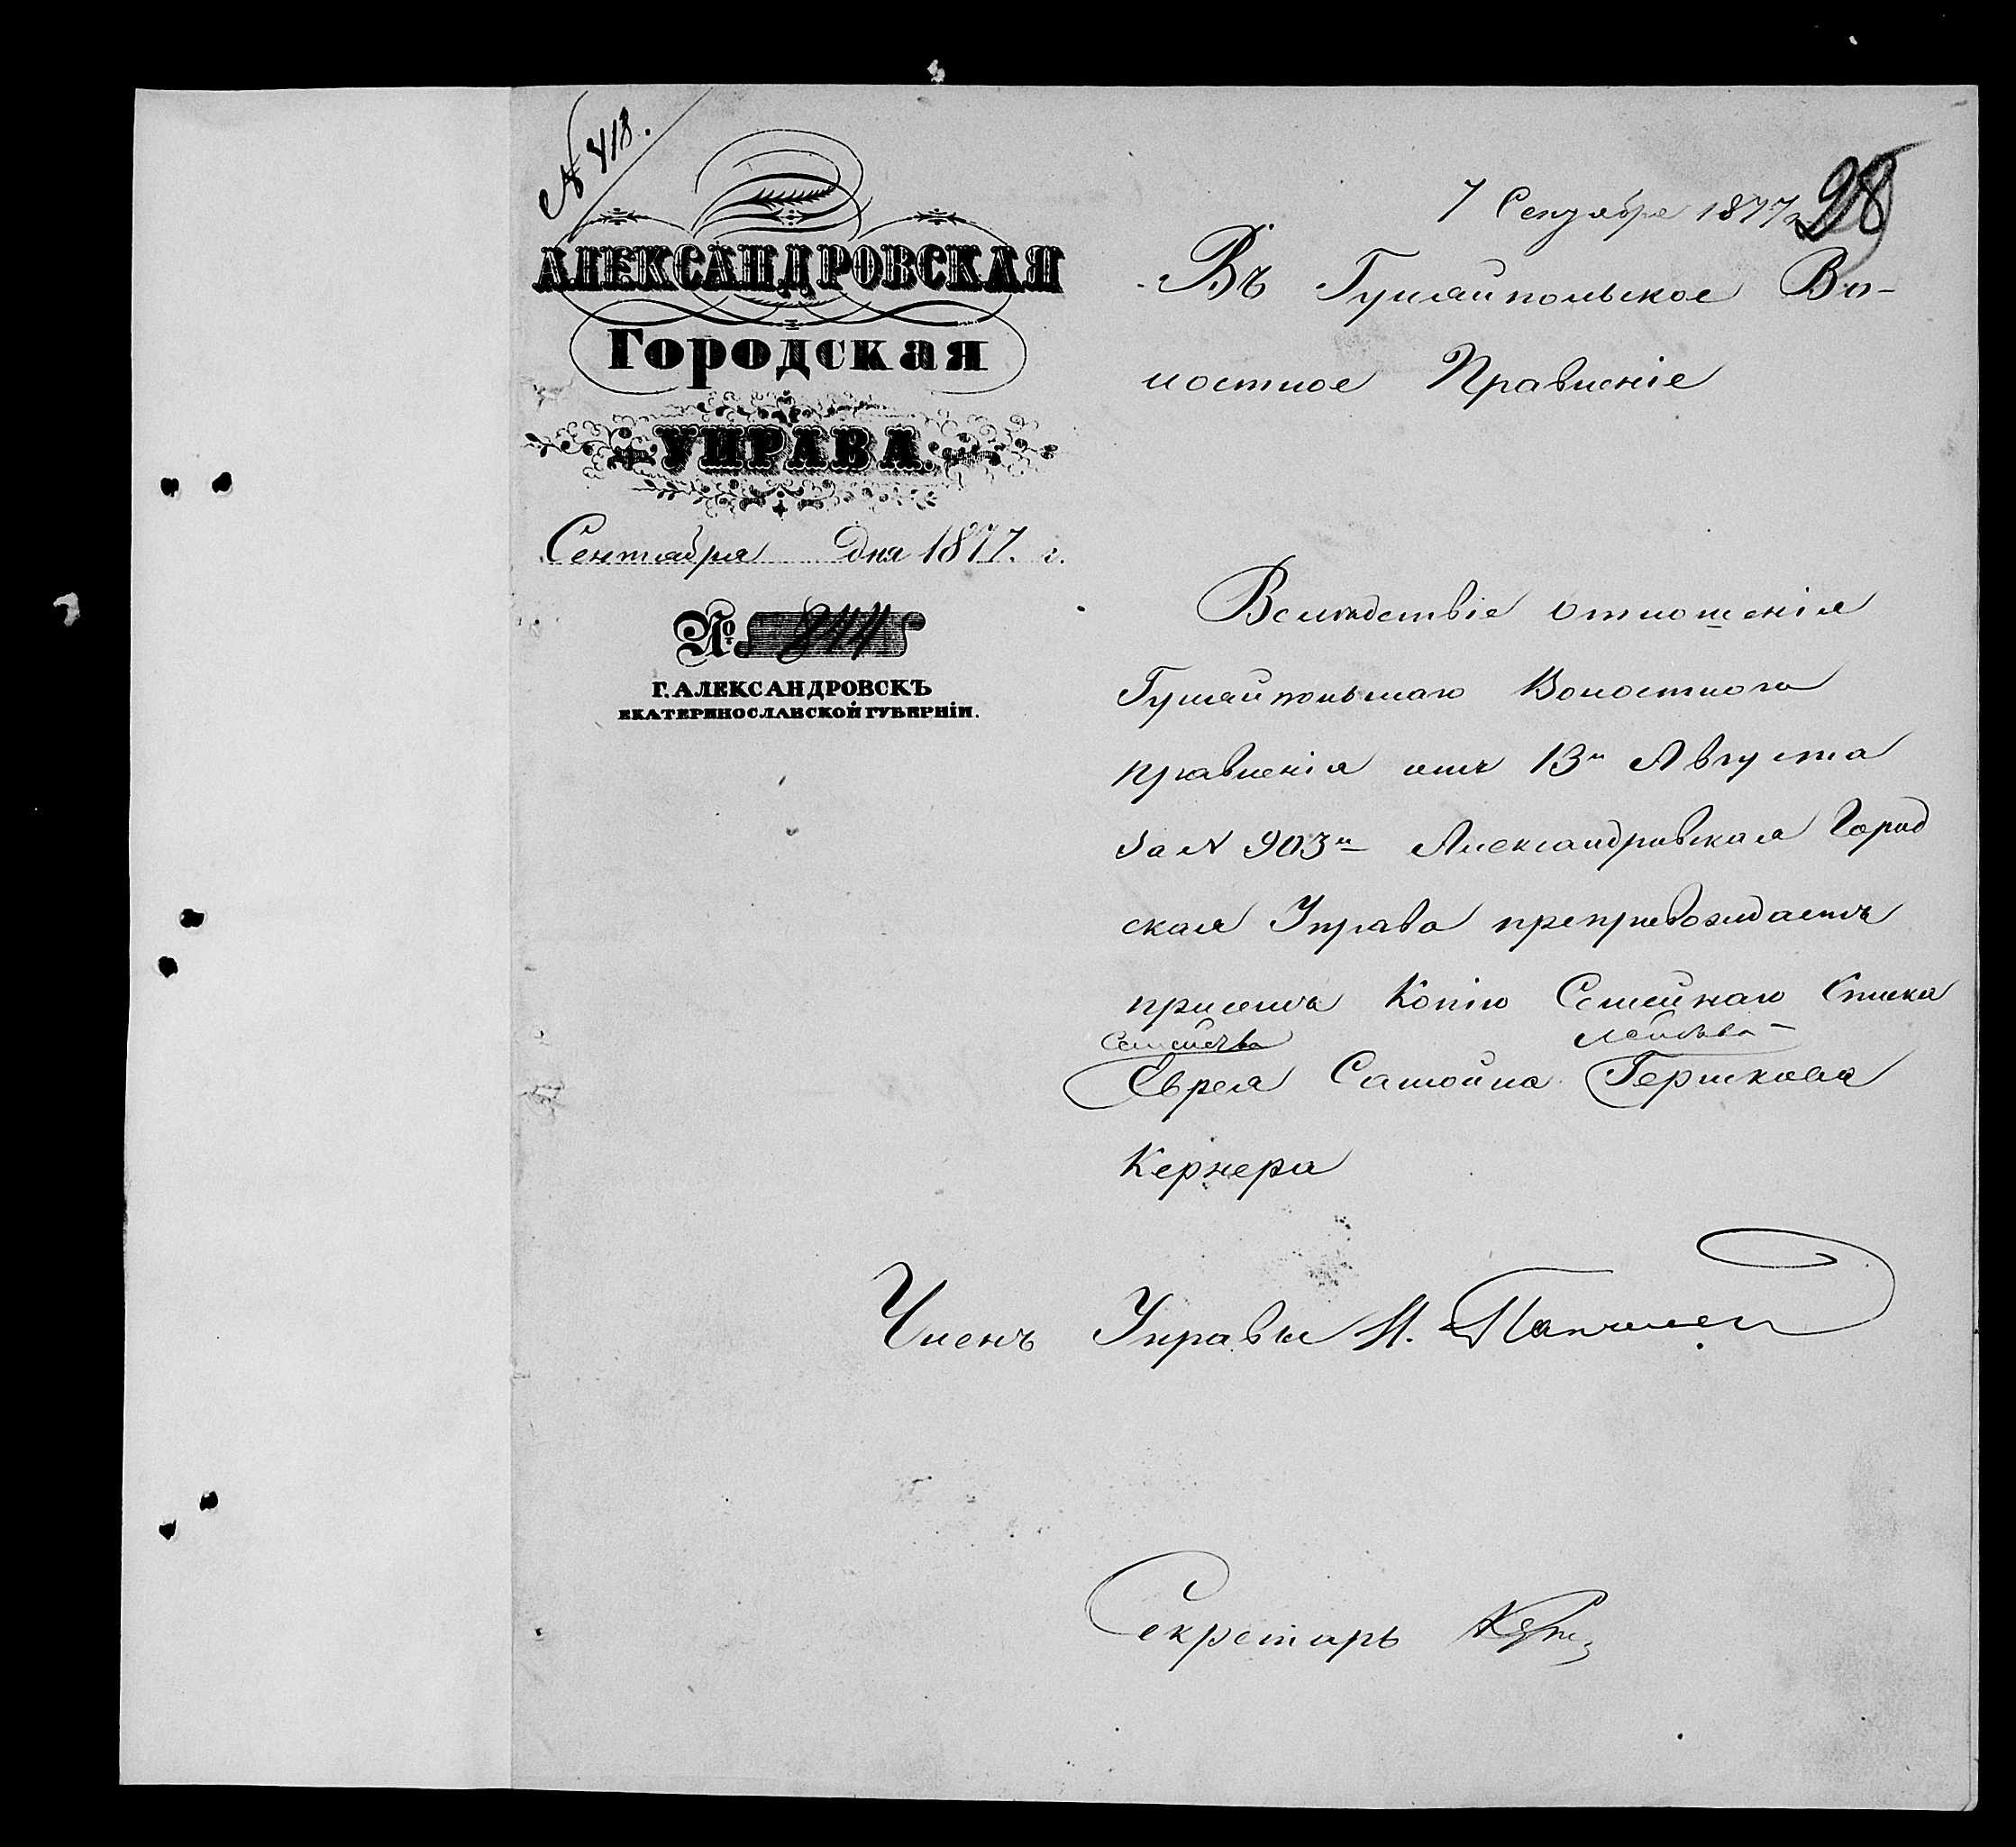 № 418.
АЛЕКСАНДРОВСКАЯ
Городская
УПРАВА.
Сентября дня 1877. г.
№ 844
Г. АЛЕКСАНДРОВСКЪ
ЕКАТЕРИНОСЛАВСКОЙ ГУБЕРНІИ.
7 Сентября 1877 г.
28
Въ Гуляйпольское Во-
лостное Правленіе
Вслѣдствіе отношенія
Гуляйпольскаго Волостного
правленія отъ 13го Августа
за № 903м Александровская Город
ская Управа препровождаетъ
при семъ Копію Семейнаго Списка
Семейства Лейбова-
Еврея Самойла Гершкова
Кернера
Членъ Управы
Секретарь